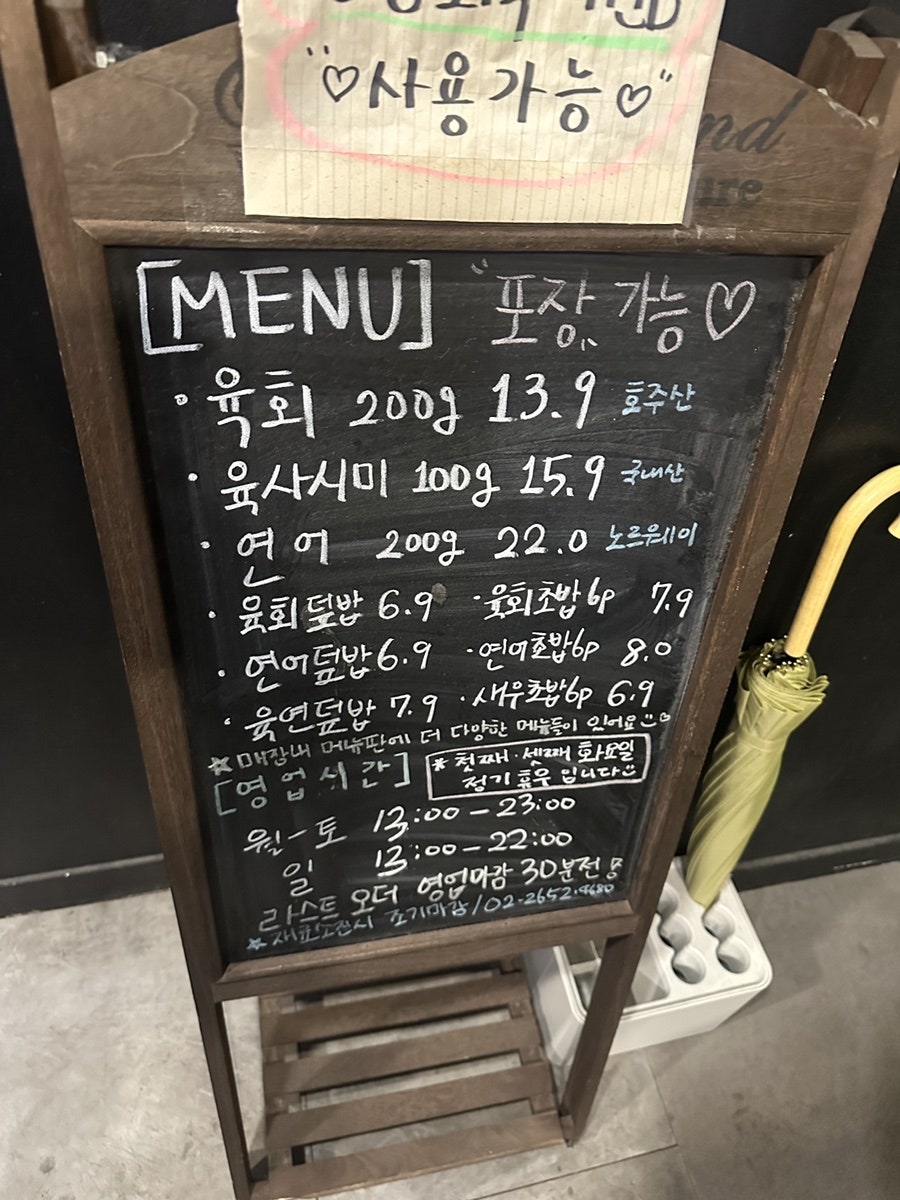 "♡사용가능♡"
nd
ure
[MENU] "포장" 가능♡
· 육회 200g 13.9 호주산
· 육사시미 100g 15.9 국내산
· 연어 200g 22.0 노르웨이
· 육회덮밥 6.9 · 육회초밥 6p 7.9
· 연어덮밥 6.9 · 연어초밥 6p 8.0
· 육연덮밥 7.9 · 새우초밥 6p 6.9
☆ 매장내 메뉴판에 더 다양한 메뉴들이 있어요
[영업시간]
* 첫째·셋째 화요일
정기휴무 입니다
월-토 13:00-23:00
일 13:00-22:00
라스트 오더 영업마감 30분전
☆ 재료소진시 조기마감/02-2652-9680